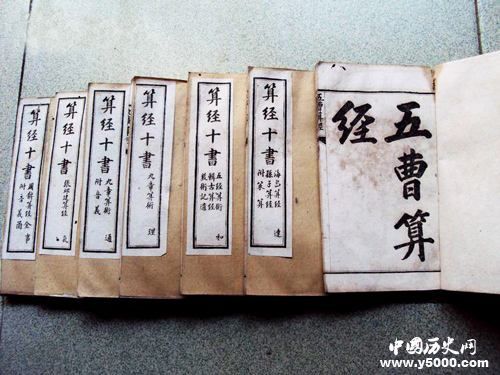 算经十書
周髀算经全
附音義
算经十書
張邱建算经
算经十書
九章算術
附音義
通
算经十書
九章算術
理
算经十書
五经算術
輯古算经
数術記遺
和
算经十書
海岛算经
孫子算经
附策算
達
五曹算
经
中国历史网
www.y5000.com